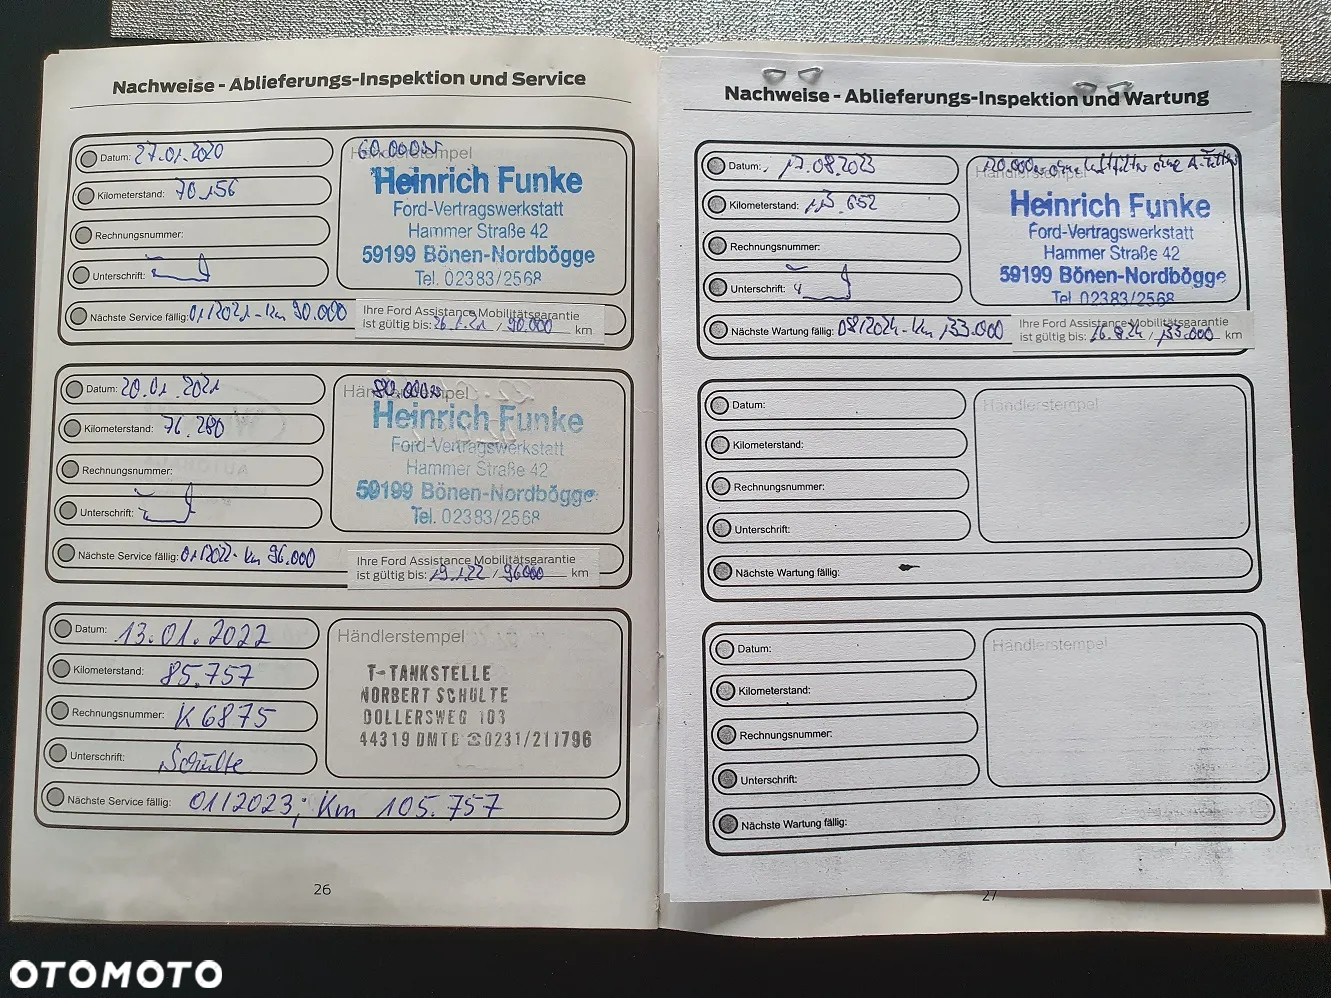 Nachweise - Ablieferungs-Inspektion und Service
Datum: 27.01.2020
Kilometerstand: 70.156
Rechnungsnummer:
Unterschrift:
Nächste Service fällig: 01/2021 - Km 90.000
60.000er
Händlerstempel
Heinrich Funke
Ford-Vertragswerkstatt
Hammer Straße 42
59199 Bönen-Nordbögge
Tel. 02383/2568
Ihre Ford Assistance Mobilitätsgarantie
ist gültig bis: 26.1.21 / 90.000 km
Datum: 20.01.2021
Kilometerstand: 76.280
Rechnungsnummer:
Unterschrift:
Nächste Service fällig: 01/2022 - Km 96.000
80.000er
Händlerstempel
Heinrich Funke
Ford-Vertragswerkstatt
Hammer Straße 42
59199 Bönen-Nordbögge
Tel. 02383/2568
Ihre Ford Assistance Mobilitätsgarantie
ist gültig bis: 19.1.22 / 96000 km
Datum: 13.01.2022
Kilometerstand: 85.757
Rechnungsnummer: K6875
Unterschrift: Schulte
Nächste Service fällig: 01/2023; Km 105.757
Händlerstempel
T-TANKSTELLE
NORBERT SCHULTE
DOLLERSWEG 103
44319 DMTD ☎0231/211796
26
Nachweise - Ablieferungs-Inspektion und Wartung
Datum: 17.08.2023
Kilometerstand: 113.652
Rechnungsnummer:
Unterschrift:
Nächste Wartung fällig: 08/2024 - Km 133.000
120.000er ohne Luftfilter ohne
Händlerstempel
Heinrich Funke
Ford-Vertragswerkstatt
Hammer Straße 42
59199 Bönen-Nordbögge
Tel. 02383/2568
Ihre Ford Assistance Mobilitätsgarantie
ist gültig bis: 16.8.24 / 133.000 km
Datum:
Kilometerstand:
Rechnungsnummer:
Unterschrift:
Nächste Wartung fällig:
Händlerstempel
Datum:
Kilometerstand:
Rechnungsnummer:
Unterschrift:
Nächste Wartung fällig:
Händlerstempel
27
OTOMOTO